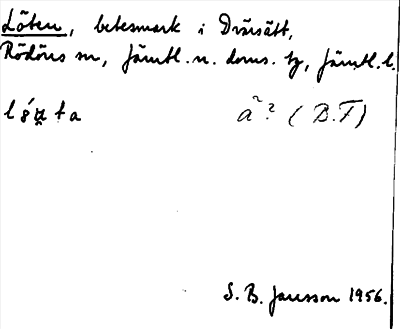 Löten, betesmark i Dvärsätt,
Rödöns sn, Jämtl. n. doms. tg, Jämtl. l.
ã? (D.F)
S. B. Jansson 1956.